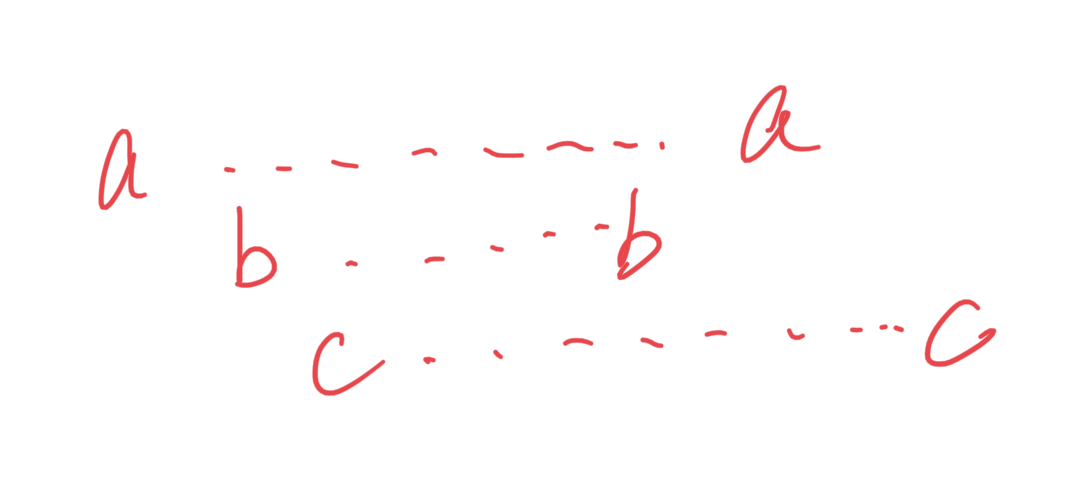 a - - - - - - - - a
b - - - - - b
c - - - - - - - - - c